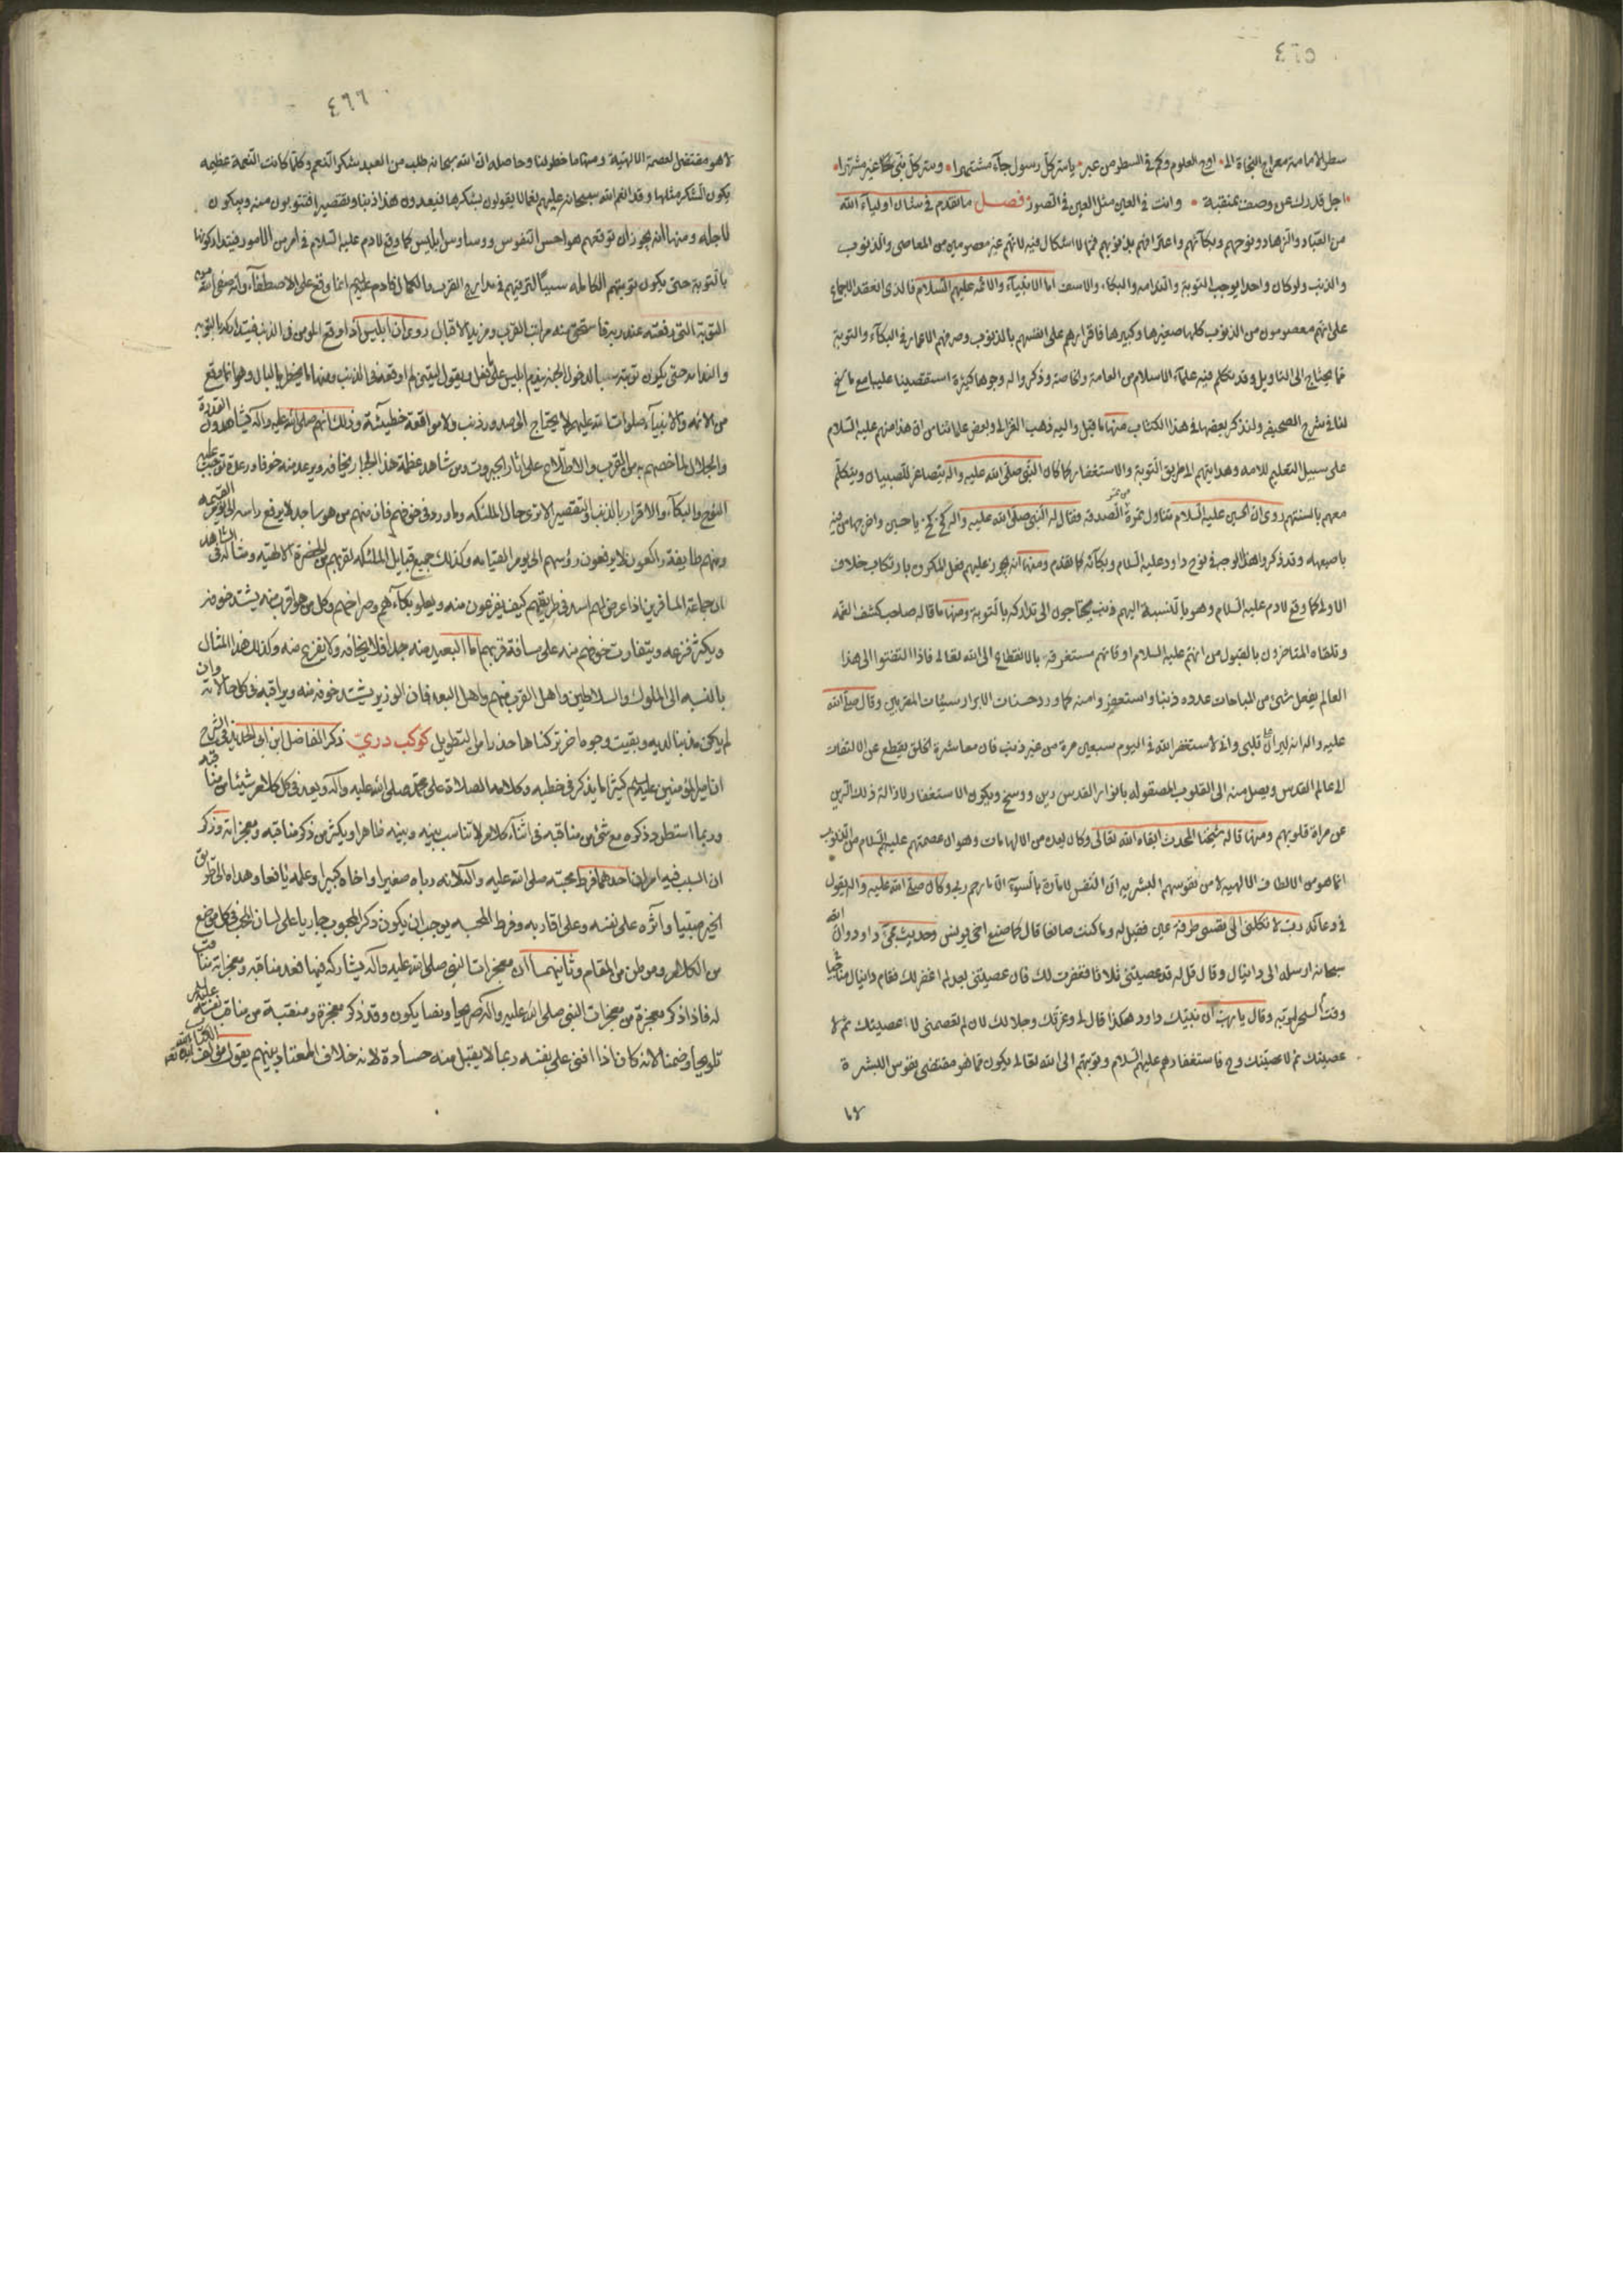 ٤٦٥
سطر الامامة معراج النجاة الى اوج العلوم وكم في السطر من عبر يا ستر كل رسول جاء مشتهرا وستر كل نبي غير مشتهرا
اجل قدرك عن وصف بمنقبة وانت في العين مثل العين في الصور فصل ما تقدم في شان اولياء الله
من العباد والزهاد ونوحهم وبكائهم واعترافهم بذنوبهم فمما لا اشكال فيه لانهم غير معصومين من المعاصي والذنوب
والذنب ولو كان واحدا يوجب التوبة والندامه والبكاء والاسف اما الانبياء والائمه عليهم السلام فالذي انعقد الاجماع
على انهم معصومون من الذنوب كلها صغيرها وكبيرها فاقرارهم على انفسهم بالذنوب وصرفهم الاعمار في البكاء والتوبة
مما يحتاج الى التاويل وقد تكلم فيه علماء الاسلام من العامة والخاصة وذكروا له وجوها كثيرة استقصينا عليها مع ما سنح
لنا في شرح الصحيفه ولنذكر بعضها في هذا الكتاب منها ما قيل واليه ذهب الغزالي وبعض علمائنا من ان هذا منهم عليهم السلام
على سبيل التعليم للامه وهدايتهم الى طريق التوبة والاستغفار كما كان النبي صلى الله عليه واله يتصاغر للصبيان ويتكلم
معهم بالسنتهم روى ان الحسين عليه السلام تناول تمرة من تمر الصدقه فقال له النبي صلى الله عليه واله كخ كخ يا حسين واخرجها من فيه
باصبعه وقد ذكروا هذا الوجه في نوح داود عليه السلام وبكائه كما تقدم ومنها انه يجوز عليهم فعل المكروه بارتكاب خلاف
الاولى كما وقع لادم عليه السلام وهو بالنسبة اليهم ذنب يحتاجون الى تداركه بالتوبة ومنها ما قاله صاحب كشف الغمه
وتلقاه المتاخرون بالقبول من انهم عليهم السلام اوقاتهم مستغرقة بالانقطاع الى الله تعالى فاذا التفتوا الى هذا
العالم بفعل شيء من المباحات عدوه ذنبا واستغفروا منه كما ورد حسنات الابرار سيئات المقربين وقال صلى الله
عليه واله انه ليران على قلبي واني لاستغفر الله في اليوم سبعين مرة من غير ذنب فان معاشرة الخلق يقطع عن الالتفات
لعالم القدس ويصل منه الى القلوب المصقوله بانوار القدس رين ووسخ ويكون الاستغفار لازالة ذلك الرين
عن مراة قلوبهم ومنها ما قاله شيخنا المحدث ابقاه الله تعالى وكان يعده من الالهامات وهو ان عصمتهم عليهم السلام من الذنوب
انما هو من الالطاف الالهية لا من نفوسهم البشريه ان النفس لامارة بالسوء الا ما رحم ربي وكان صلى الله عليه واله يقول
في دعائه رب لا تكلني الى نفسي طرفة عين فقيل له وما كنت صانعا قال كما صنع اخي يونس وحديث داود وان الله
سبحانه ارسله الى دانيال وقال قل له قد عصيتني ثلاثا فغفرت لك فان عصيتني بعد لم اغفر لك فقام دانيال مناجيا
وقت السحر لربه وقال يا رب ان نبيك داود هكذا قال لي وعزتك وجلالك لان لم تعصمني لاعصينك ثم لا
عصينك ثم لاعصينك وح فاستغفارهم عليهم السلام وتوبتهم الى الله تعالى يكون مما هو مقتضى نفوس البشرة
لا
٤٦٦
لا هو مقتضى لعصمة الالهية ومنها ما خطر لنا وحاصله ان الله سبحانه طلب من العبد شكر النعم وكلما كانت النعمة عظيمه
يكون الشكر مثلها وقد انعم الله سبحانه عليهم نعما لا يقولون بشكرها فيعدون هذا ذنبا وتقصيرا فيتوبون منه ويبكون
لاجله ومنها انه يجوز ان توقعهم هواجس النفوس ووساوس ابليس كما وقع لادم عليه السلام في امر من الامور فيتداركونها
بالتوبة حتى يكون توبتهم الكامله سببا لترقيهم في مدارج القرب والكمال فادم عليه السلام انما وقع على الاصطفاء وانه صفي الله
التوبة التي دفعته عند ربه فاستحق منه مراتب القرب ومزيد الاقبال روى ان ابليس اذا اوقع المومن في الذنب فيتداركه بالتوبه
والندامه حتى يكون توبته سببا لدخول الجنة يندم ابليس على ما فعل ويقول ليتني لم اوقعه في الذنب ومنها ما يخطر بالبال وهو ان ما وقع
من الائمه والانبياء صلوات الله عليهم لا يحتاج الى صدور ذنب ولا مواقعة خطيئة وذلك انهم صلى الله عليه واله يشاهدون القدرة
والجلال لما خصهم به من القرب والاطلاع على اثار الجبروت ومن شاهد عظمة هذا الجبار يخافه ويرعد منه خوفا ورعدة توجب عليه
النوح والبكاء والاقرار بالذنب والتقصير الا ترى حال الملئكه وما ورد في خوفهم فان منهم من هو ساجد لا يرفع راسه الى يوم القيمه
ومنهم طايفة راكعون لا يرفعون رؤسهم الى يوم القيامه وكذلك جميع قبايل الملئكه لقربهم من الحضرة الالهيه ومثاله في الشاهد
ان جماعة المسافرين اذا عرض لهم اسد في طريقهم كيف يفزعون منه ويعلو بكاءهم وصراخهم وكل من هو اقرب منه يشتد خوفه
ويكثر فزعه ويتفاوت خوفهم منه على مسافة قربهم اما البعيد منه جدا فلا يخافه ولا يفزع منه وكذلك هذا المثال
بالنسبه الى الملوك والسلاطين واهل القرب منهم واهل البعد فان الوزير يشتد خوفه منه ويراقبه في كل حالاته وان
لم يكن مذنبا لديه وبقيت وجوه اخر تركناها حذرا من التطويل كوكب دري ذكر الفاضل ابن ابي الحديد في الشرح
ان امير المؤمنين عليه السلام كثيرا ما يذكر في خطبه وكلامه الصلاة على محمد صلى الله عليه واله ويعد في كل كلام شيئا من مناقبه
وربما استطرد ذكره مع شيء من مناقبه في اثناء كلام لا تناسب بينه وبينه ظاهرا ويكثر من ذكر مناقبه ومعجزاته وذكر
ان السبب فيه امران احدهما فرط محبته صلى الله عليه واله لانه رباه صغيرا واخاه كبيرا وعلمه يافعا وهداه الى طريق
الخير صبيا واثره على نفسه وعلى اقاربه وفرط المحبه يوجب ان يكون ذكر المحبوب جاريا على لسان المحب في كل موضع
من الكلام وموطن من المقام وثانيهما ان معجزات النبي صلى الله عليه واله يشاركه فيها فعد مناقبه ومعجزاته مناقب
له فاذا ذكر معجزة من معجزات النبي صلى الله عليه واله صريحا ونصا يكون وقد ذكر معجزة ومنقبة من مناقب نفسه عليه السلام
تلويحا وضمنا لانه كان اذا اثنى على نفسه ربما لا يقبل منه حسادة لانه خلاف المعتاد بينهم يقول مؤلف الكتاب